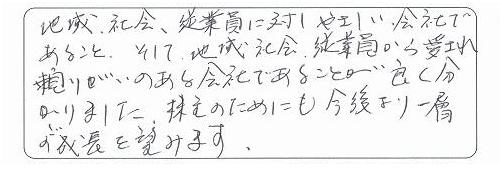 地域、社会、従業員に対しやさしい会社で
あること、そして地域社会、従業員から愛され
頼りがいのある会社であることが良く分
かりました。株主のためにも今後より一層
の成長を望みます。